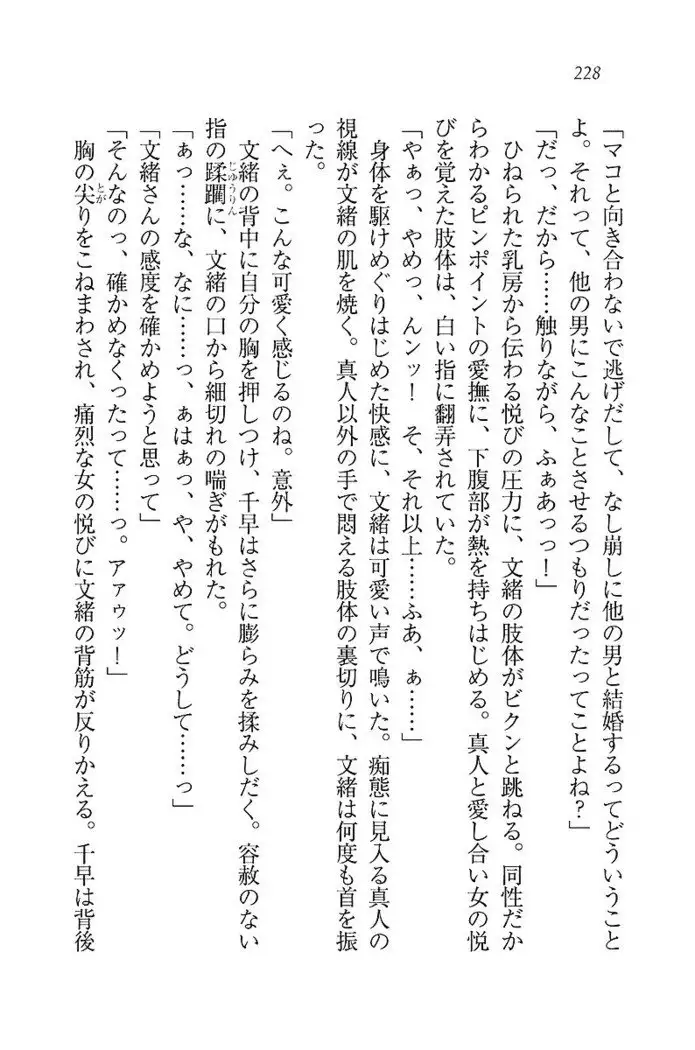 228
「マコと向き合わないで逃げだして、なし崩しに他の男と結婚するってどういうこと
よ。それって、他の男にこんなことさせるつもりだったってことよね？」
「だっ、だから……触りながら、ふぁあっっ！」
ひねられた乳房から伝わる悦びの圧力に、文緒の肢体がビクンと跳ねる。同性だか
らわかるピンポイントの愛撫に、下腹部が熱を持ちはじめる。真人と愛し合い女の悦
びを覚えた肢体は、白い指に翻弄されていた。
「やぁっ、やめっ、んンッ！　そ、それ以上……ふあ、ぁ……」
身体を駆けめぐりはじめた快感に、文緒は可愛い声で鳴いた。痴態に見入る真人の
視線が文緒の肌を焼く。真人以外の手で悶える肢体の裏切りに、文緒は何度も首を振
った。
「へぇ。こんな可愛く感じるのね。意外」
文緒の背中に自分の胸を押しつけ、千早はさらに膨らみを揉みしだく。容赦のない
指の蹂躙じゅうりんに、文緒の口から細切れの喘ぎがもれた。
「ぁっ……な、なに……っ、ぁはぁっ、や、やめて。どうして……っ」
「文緒さんの感度を確かめようと思って」
「そんなのっ、確かめなくったって……っ。アァゥッ！」
胸の尖とがりをこねまわされ、痛烈な女の悦びに文緒の背筋が反りかえる。千早は背後